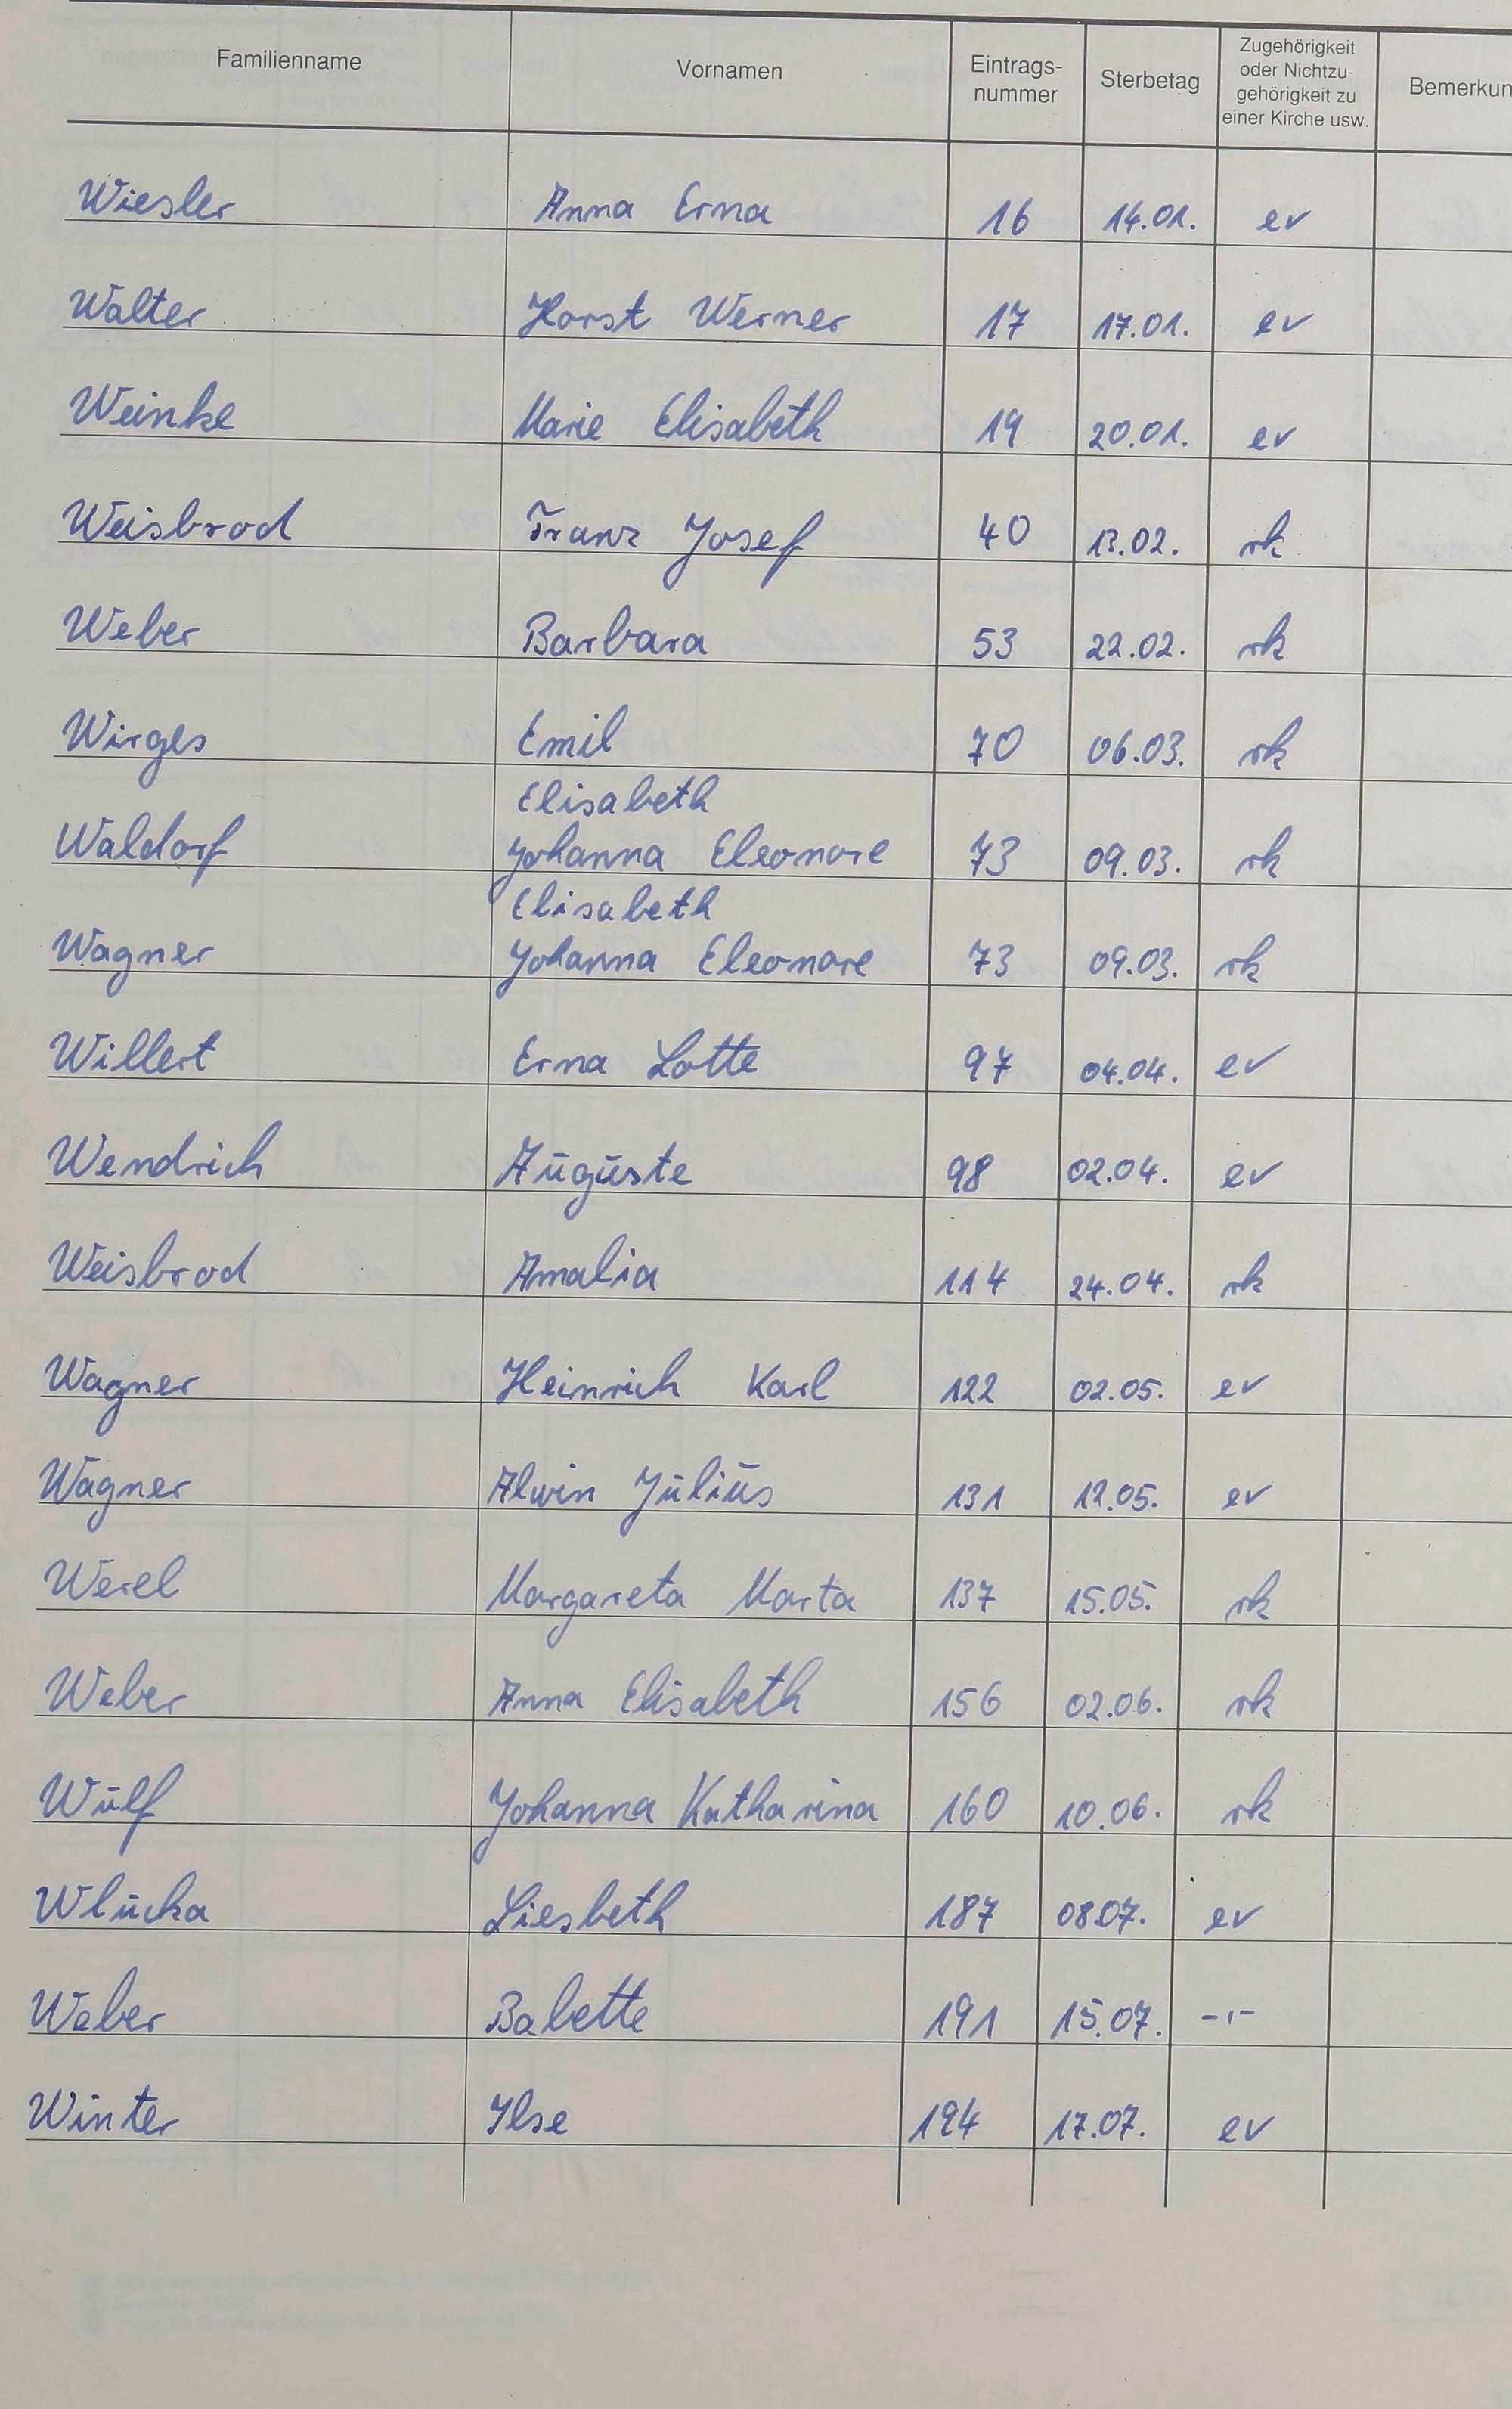 Familienname Vornamen Eintrags-nummer Sterbetag Zugehörigkeit oder Nichtzu-gehörigkeit zu einer Kirche usw. Bemerkun
Wiesler Anna Erna 16 14.01. ev
Walter Horst Werner 17 17.01. ev
Weinke Marie Elisabeth 19 20.01. ev
Weisbrod Franz Josef 40 13.02. rk
Weber Barbara 53 22.02. rk
Wirges Emil 70 06.03. rk
Elisabeth
Waldorf Johanna Eleonore 73 09.03. rk
Elisabeth
Wagner Johanna Eleonore 73 09.03. rk
Willert Erna Lotte 97 04.04. ev
Wendrich Auguste 98 02.04. ev
Weisbrod Amalia 114 24.04. rk
Wagner Heinrich Karl 122 02.05. ev
Wagner Alwin Julius 131 12.05. ev
Werel Margareta Marta 137 15.05. rk
Weber Anna Elisabeth 156 02.06. rk
Wulf Johanna Katharina 160 10.06. rk
Wlucka Liesbeth 187 08.07. ev
Weber Babette 191 15.07. -,-
Winter Ilse 194 17.07. ev